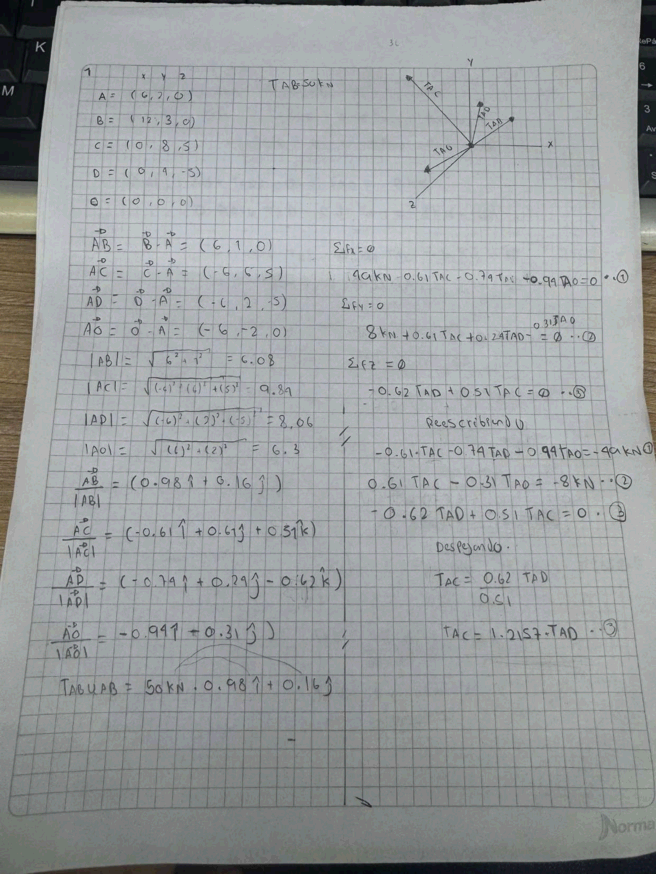 1
x y z
A = (6, 2, 0)
B = (12, 3, 0)
C = (0, 8, 5)
D = (0, 4, -5)
O = (0, 0, 0)
TAB 50KN
Y
TAC
TAD
TAB
TAO
X
Z
AB = B - A = (6, 1, 0)
AC = C - A = (-6, 6, 5)
AD = D - A = (-6, 2, -5)
AO = O - A = (-6, -2, 0)
|AB| = √6² + 1² = 6.08
|AC| = √(-6)² + (6)² + (5)² = 9.84
|AD| = √(-6)² + (2)² + (-5)² = 8,06
|AO| = √(6)² + (2)² = 6.3
AB/|AB| = (0.98î + 0.16ĵ)
AC/|AC| = (-0.61î + 0.61ĵ + 0.51k̂)
AD/|AD| = (-0.74î + 0.24ĵ - 0.62k̂)
AO/|AO| = -0.94î - 0.31ĵ)
TAB UAB = 50KN . 0.98î + 0.16ĵ
ΣFx = 0
49KN - 0.61 TAC - 0.74 TAC - 0.94 TAO = 0 ... ①
ΣFy = 0
8KN + 0.61 TAC + 0.24 TAD - 0.31 TAO = 0 ... ②
ΣFz = 0
-0.62 TAD + 0.51 TAC = 0 ... ③
Reescribiendo
-0.61.TAC - 0.74 TAD - 0.94 TAO = -49KN ①
0.61 TAC - 0.31 TAO = -8KN .. ②
-0.62 TAD + 0.51 TAC = 0 . ③
Despejando.
TAC = 0.62 TAD
0.51
TAC = 1.2157.TAD .. ③
Norma